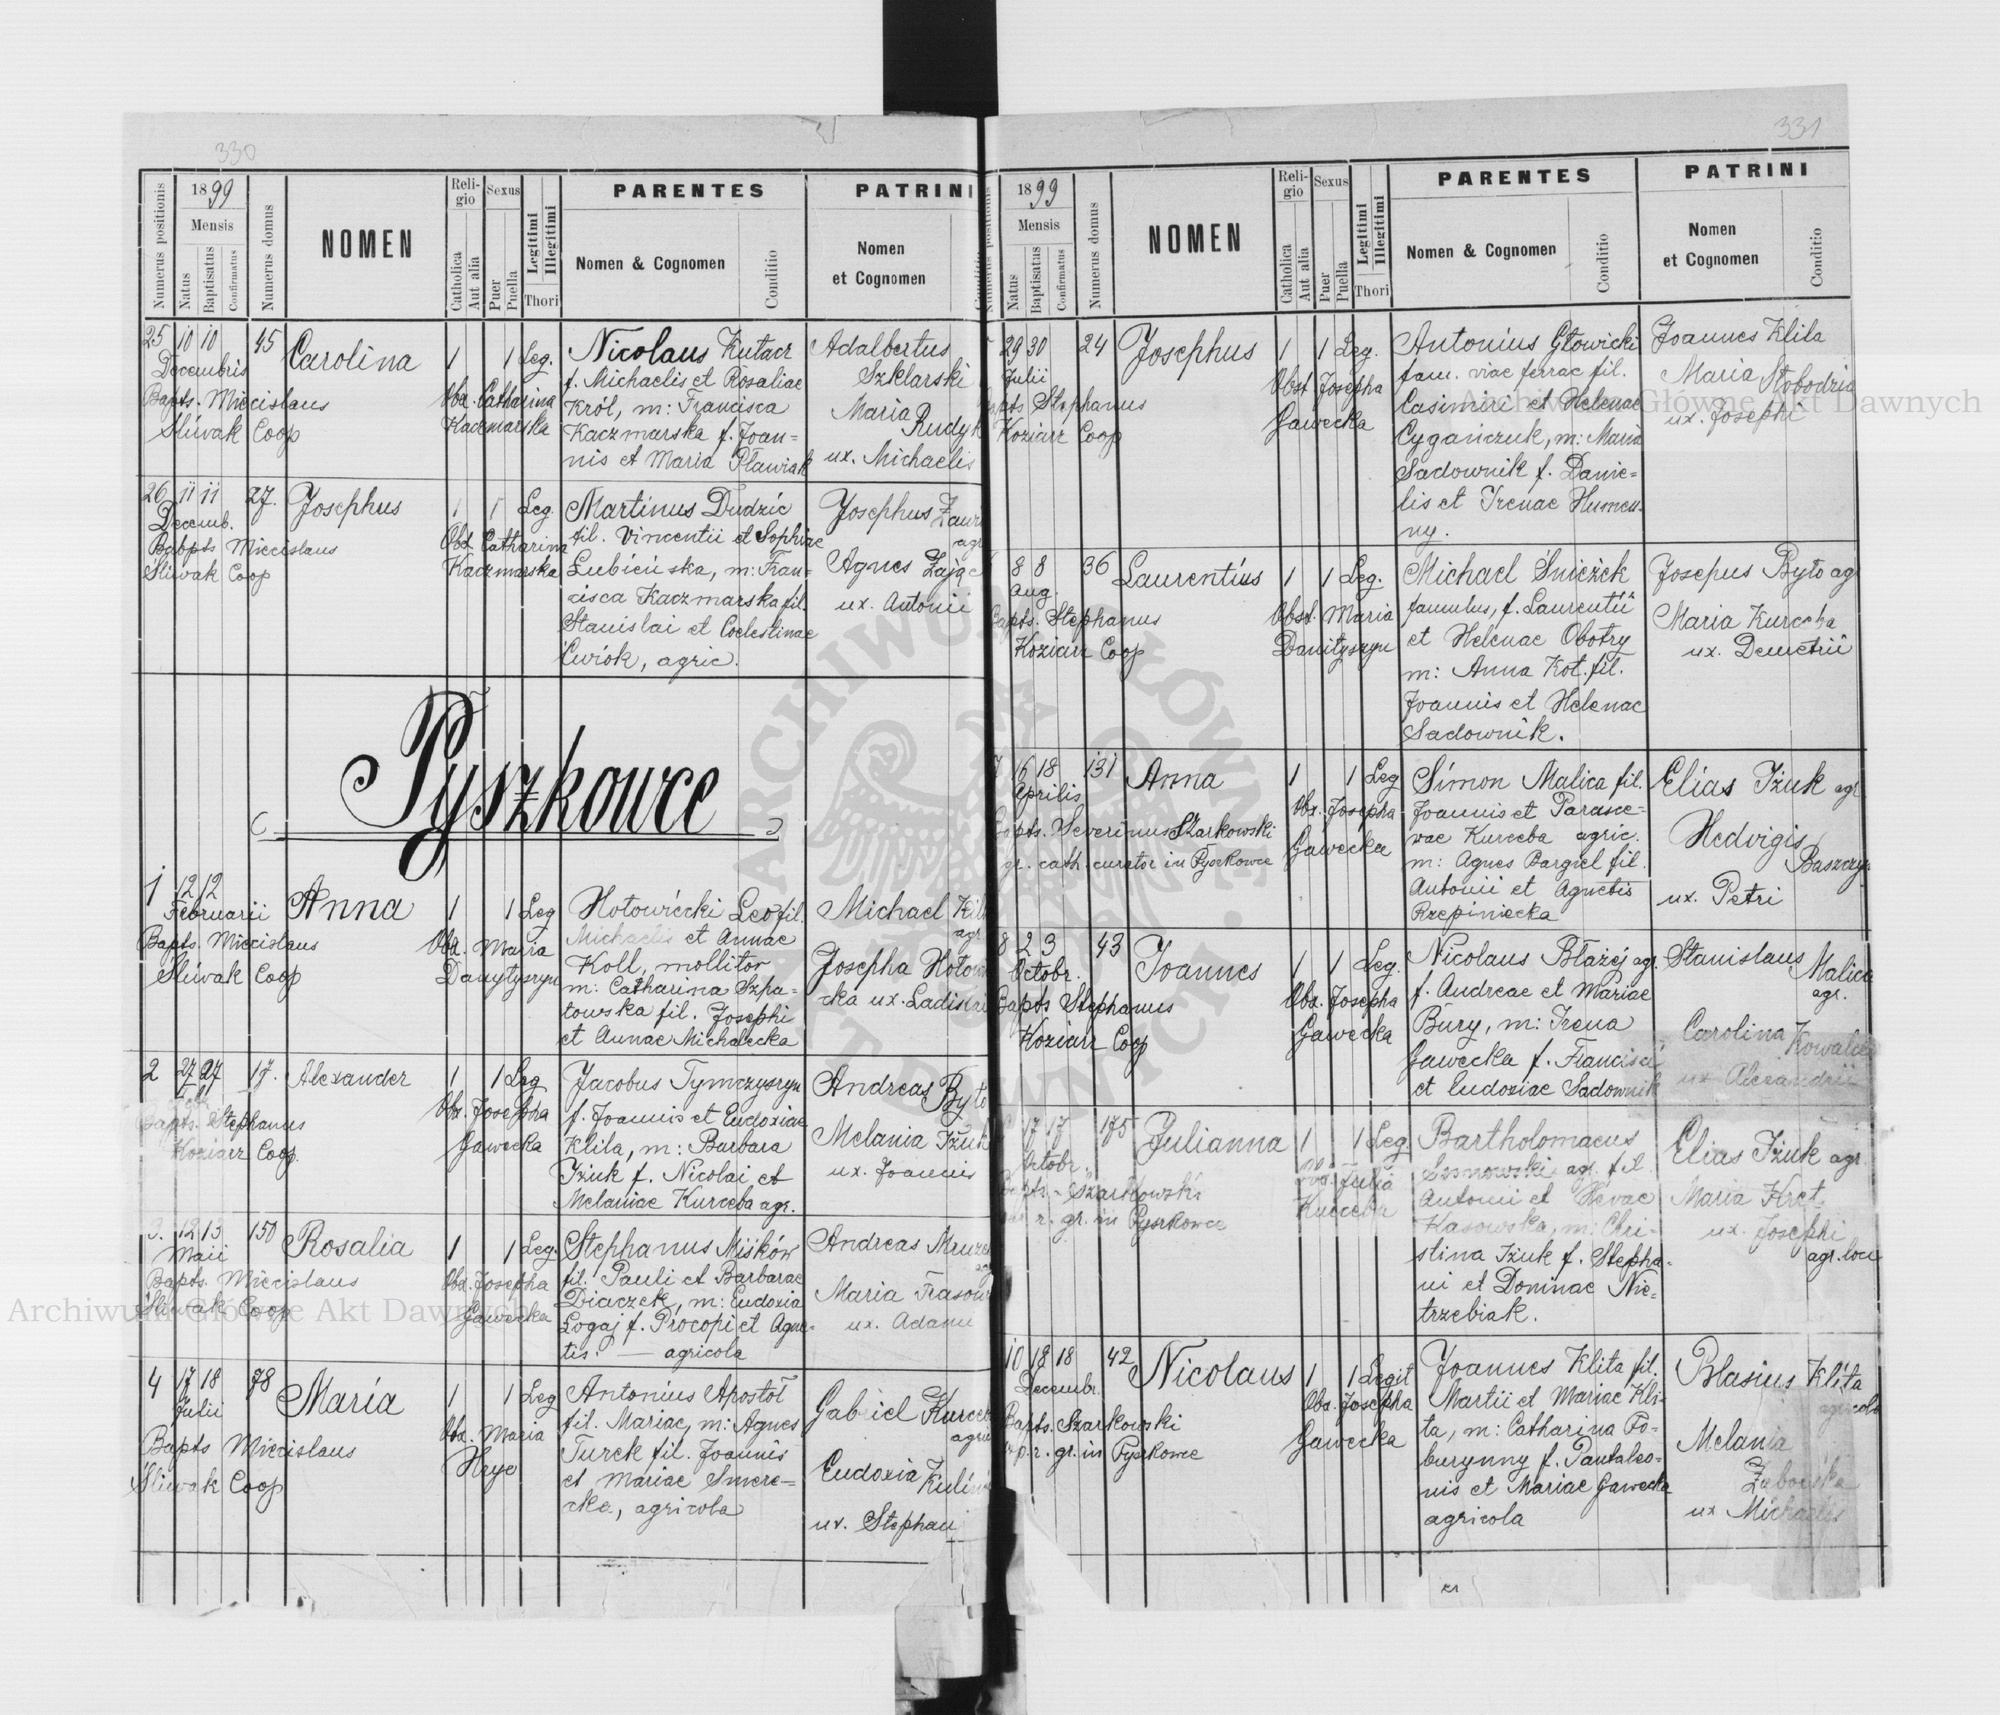 330
Numerus positionis
1899
Mensis
Natus
Baptisatus
Confirmatus
Numerus domus
NOMEN
Religio
Catholica
Aut alia
Sexus
Puer
Puella
Legitimi
Illegitimi
Thori
PARENTES
Nomen & Cognomen
Conditio
PATRINI
Nomen
et Cognomen
25 10 10 45 Carolina 1 1 Leg.
Decembris
Bapts. Miecislaus
Śliwak Coop
Obst. Catharina
Kaczmarska
Nicolaus Kutacz
f. Michaelis et Rosaliae
Król, m: Francisca
Kaczmarska f. Joan-
nis et Maria Pławiak
Adalbertus
Szklarski
Maria
Rudyk
ux. Michaelis
26 11 11 27. Josephus 1 1 Leg.
Decemb.
Babpts Miecislaus
Śliwak Coop
Obst. Catharina
Kaczmarska
Martinus Dudzic
fil. Vincentii et Sophiae
Lubieńska, m: Fran-
cisca Kaczmarska fil.
Stanislai et Coelestinae
Ćwiok, agric.
Josephus
Agnes Zając
ux. Antonii
Pyszkowce
1 12 12 Anna 1 1 Leg
Februarii
Bapts. Miecislaus
Śliwak Coop
Obst. Maria
Danytyszyn
Hotowiecki Leo fil.
Michaelis et Annae
Koll, mollitor
m: Catharina Szpa-
towska fil. Josephi
et Annae Michalecka
Michael
agr.
Josepha
cka ux. Ladislai
2 27 27 17. Alexander 1 1 Leg
Bapts. Stephanus
Koziarz Coop.
Obst. Josepha
Gawecka
Jacobus Tymczyszyn
f. Joannis et Eudoxiae
Klita, m: Barbara
Iżuk f. Nicolai et
Melaniae Kurceba agr.
Andreas Byto
Melania Iżuk
ux. Joannis
3. 12 13 150 Rosalia 1 1 Leg.
Maii
Bapts. Miecislaus
Śliwak Coop
Obst. Josepha
Gawecka
Stephanus Miśków
fil. Pauli et Barbarae
Diaczek, m: Eudoxia
Łogaj f. Procopi et Agne-
tis. — agricola
Andreas
Maria
ux. Adami
4 17 18 78 Maria 1 1 Leg
Julii
Bapts Miecislaus
Śliwak Coop
Obst. Maria
Hryc
Antonius Apostoł
fil. Mariae, m: Agnes
Turek fil. Joannis
et Mariae Smere-
cka, agricola
Gabriel
Eudoxia
ux. Stephani
331
Numerus positionis
1899
Mensis
Natus
Baptisatus
Confirmatus
Numerus domus
NOMEN
Religio
Catholica
Aut alia
Sexus
Puer
Puella
Legitimi
Illegitimi
Thori
PARENTES
Nomen & Cognomen
Conditio
PATRINI
Nomen
et Cognomen
Conditio
29 30 24 Josephus 1 1 Leg.
Julii
Bapts Stephanus
Koziarz Coop
Obst Josepha
Gawecka
Antonius Głowicki
fam. viae ferrae fil.
Casimiri et Helenae
Cygańczuk, m: Maria
Sadownik f. Danie-
lis et Irenae Humen-
ny.
Joannes Klita
Maria Słobodzia
ux. Josephi
8 8 36 Laurentius 1 1 Leg.
Aug.
Bapts. Stephanus
Koziarz Coop
Obst. Maria
Danityszyn
Michael Śnieżek
famulus, f. Laurentii
et Helenae Obotry
m: Anna Kot. fil.
Joannis et Helenae
Sadownik.
Josepus Byto agr
Maria Kurceba
ux. Demetrii
7 16 18 131 Anna 1 1 Leg
Aprilis
Bapts. Severinus Szarkowski
gr. cath. curator in Pyszkowce
Obst. Josepha
Gawecka
Simon Malica fil.
Joannis et Parasce-
vae Kurceba agric.
m: Agnes Bargiel fil.
Antonii et Agnetis
Rzepiniecka
Elias Iżuk agr
Hedvigis
ux. Petri
8 2 3 43 Joannes 1 1 Leg.
Octobr.
Bapts Stephanus
Koziarz Coop
Obst. Josepha
Gawecka
Nicolaus Błażej agr.
f. Andreae et Mariae
Bury, m: Irena
Gawecka f. Francisci
et Eudoxiae Sadownik
Stanislaus
Malica
agr.
Carolina
ux Alexandrii
17 17 175 Julianna 1 1 Leg
Octobr.
Bapts. Szarkowski
r. gr. in Pyszkowce
Obst. Julia
Kurceba
Bartholomaeus
Sosnowski agr. fil.
Antoni et Hevae
Klasowska, m: Chri-
stina Iżuk f. Stepha-
ni et Dominae Nie-
trzebiak.
Elias Iżuk agr.
Maria Kret
ux. Josephi
agr. loci
10 18 18 42 Nicolaus 1 1 Legit
Decembr.
Bapts. Szarkowski
r. gr. in Pyszkowce
Obst. Josepha
Gawecka
Joannes Klita fil.
Martii et Mariae Kli-
ta, m: Catharina To-
burynny f. Pantaleo-
nis et Mariae Gawecka
agricola
Blasius Klita
agricola
Melania
ux Michaelis
Archiwum Główne Akt Dawnych
Archiwum Główne Akt Dawnych
ARCHIWUM GŁÓWNE AKT DAWNYCH